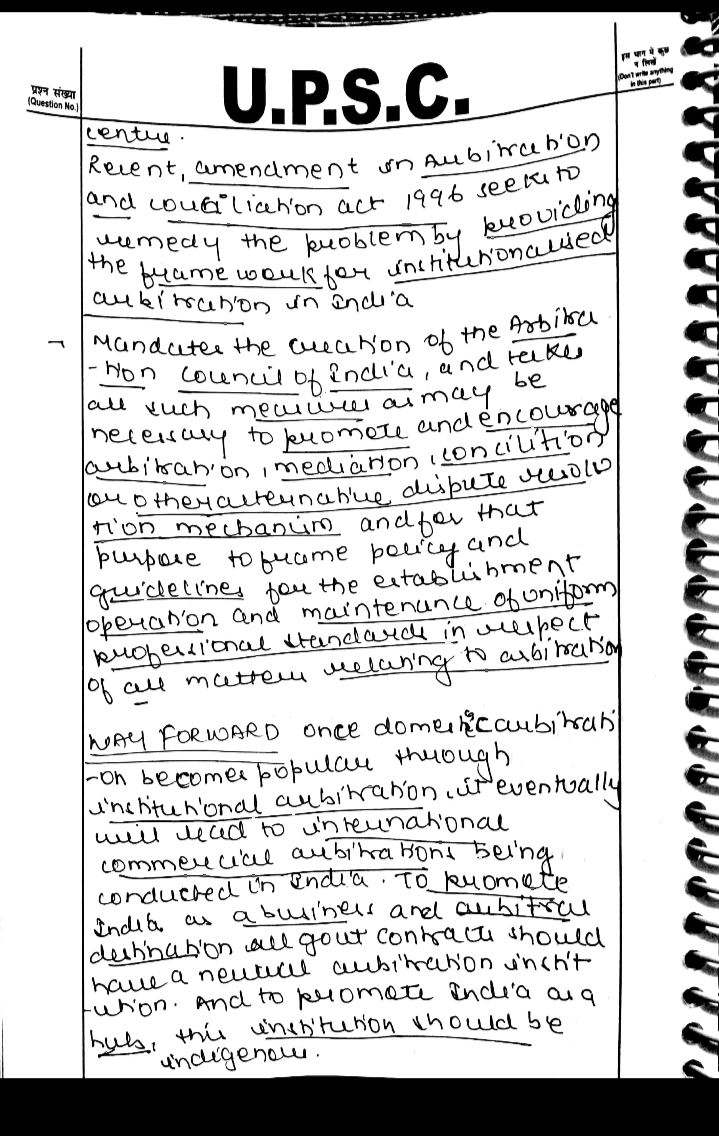 प्रश्न संख्या
(Question No.)
U.P.S.C.
इस भाग में कुछ
न लिखें
(Don't write anything
in this part)
centre.
Recent, amendment in Arbitration
and conciliation act 1996 seeks to
remedy the problem by providing
the framework for institutionalised
arbitration in India
¬ Mandates the creation of the Arbitra
-tion council of India, and takes
all such measures as may be
necessary to promote and encourage
arbitration, mediation, concilition
or other alternative dispute resolu
tion mechanism and for that
purpose to frame policy and
guidelines for the establishment
operation and maintenance of uniform
professional standards in respect
of all matters relating to arbitration
WAY FORWARD once domestic arbitrati
-on becomes popular through
institutional arbitration, it eventually
will lead to international
commercial arbitrations being
conducted in India. To promote
India as a business and arbitral
destination all govt contracts should
have a neutral arbitration instit
-ution. And to promote India as a
hub, this institution should be
indigenous.